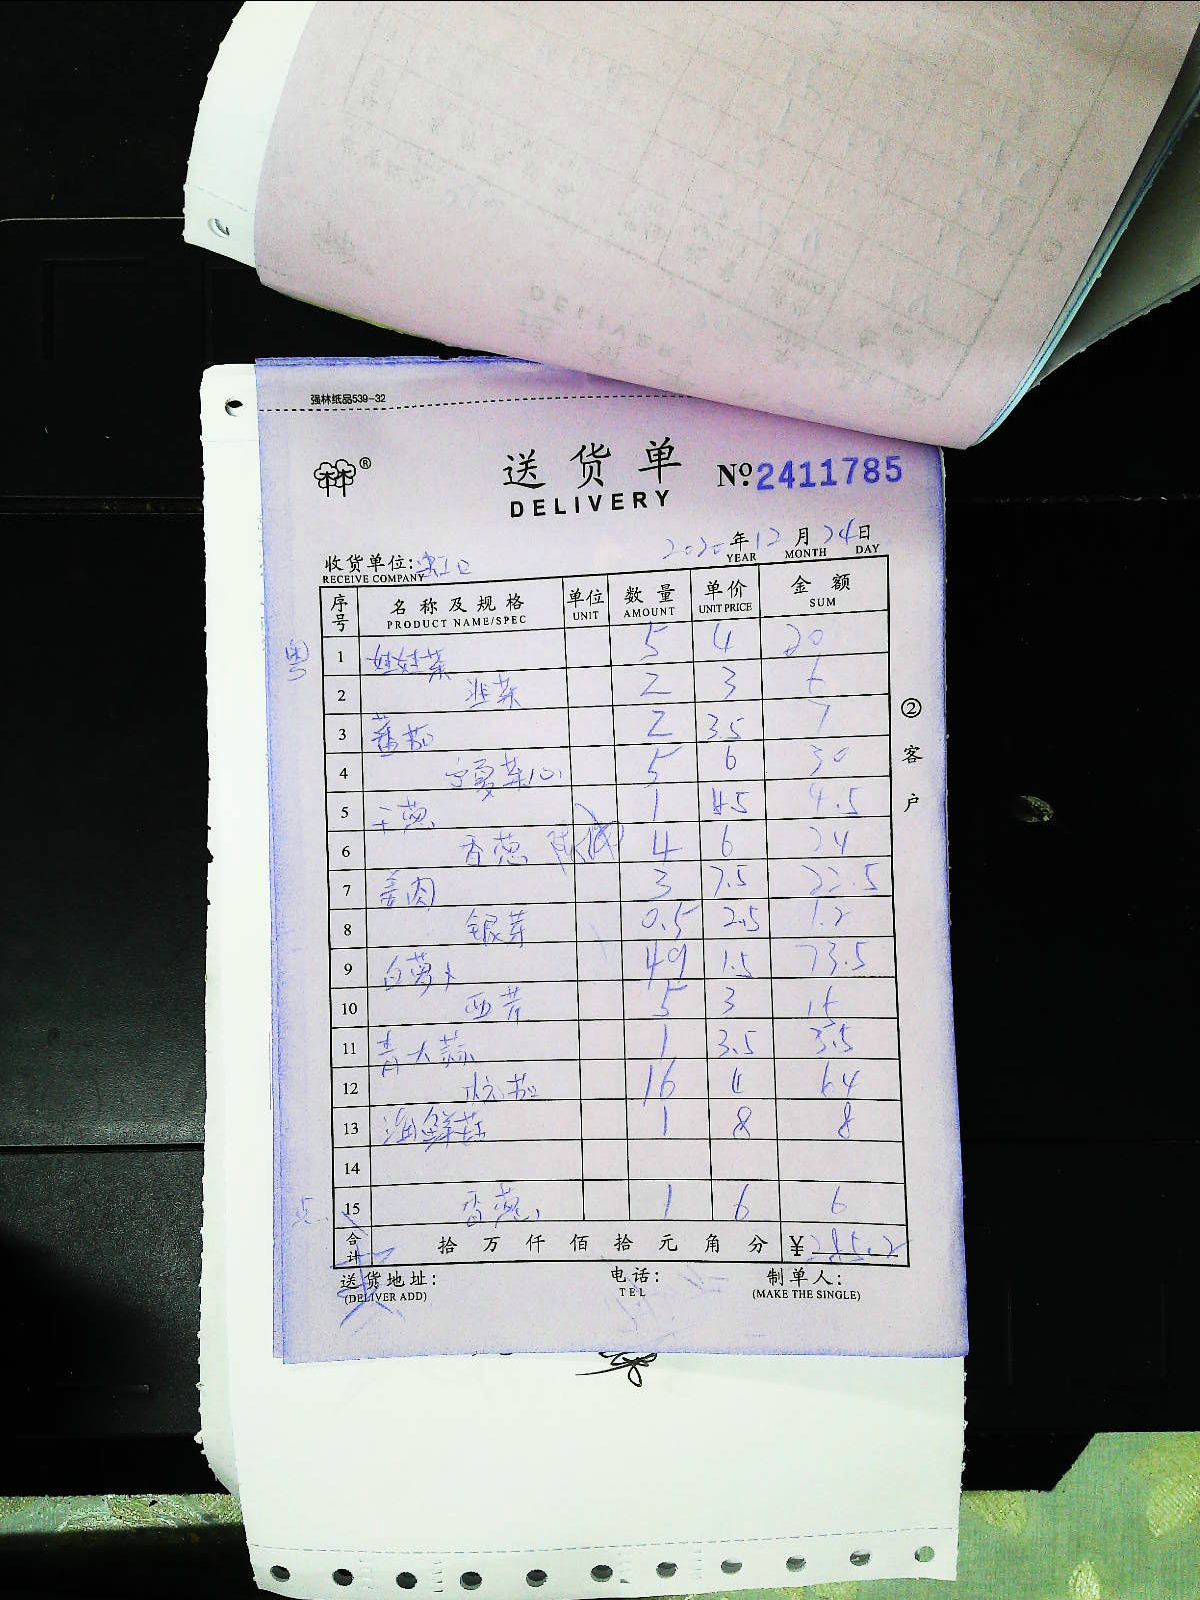 强林纸品539-32
送货单
DELIVERY
№ 2411785
2020年12月24日
YEAR MONTH DAY
收货单位:
RECEIVE COMPANY
序号 名称及规格 单位 数量 单价 金额
PRODUCT NAME/SPEC UNIT AMOUNT UNIT PRICE SUM
粤
1 娃娃菜 5 4 20
2 韭菜 2 3 6
3 蕃茄 2 3.5 7
4 宁夏菜心 5 6 30
5 干葱 1 4.5 4.5
6 香葱 4 6 24
7 姜肉 3 7.5 22.5
8 银芽 0.5 2.5 1.2
9 白萝卜 49 1.5 73.5
10 西芹 5 3 15
11 青大蒜 1 3.5 3.5
12 杭茄 16 4 64
13 海鲜菇 1 8 8
14
点 15 香葱 1 6 6
合计 拾 万 仟 佰 拾 元 角 分 ¥285.2
②客户
送货地址: 电话: 制单人:
(DELIVER ADD) TEL (MAKE THE SINGLE)